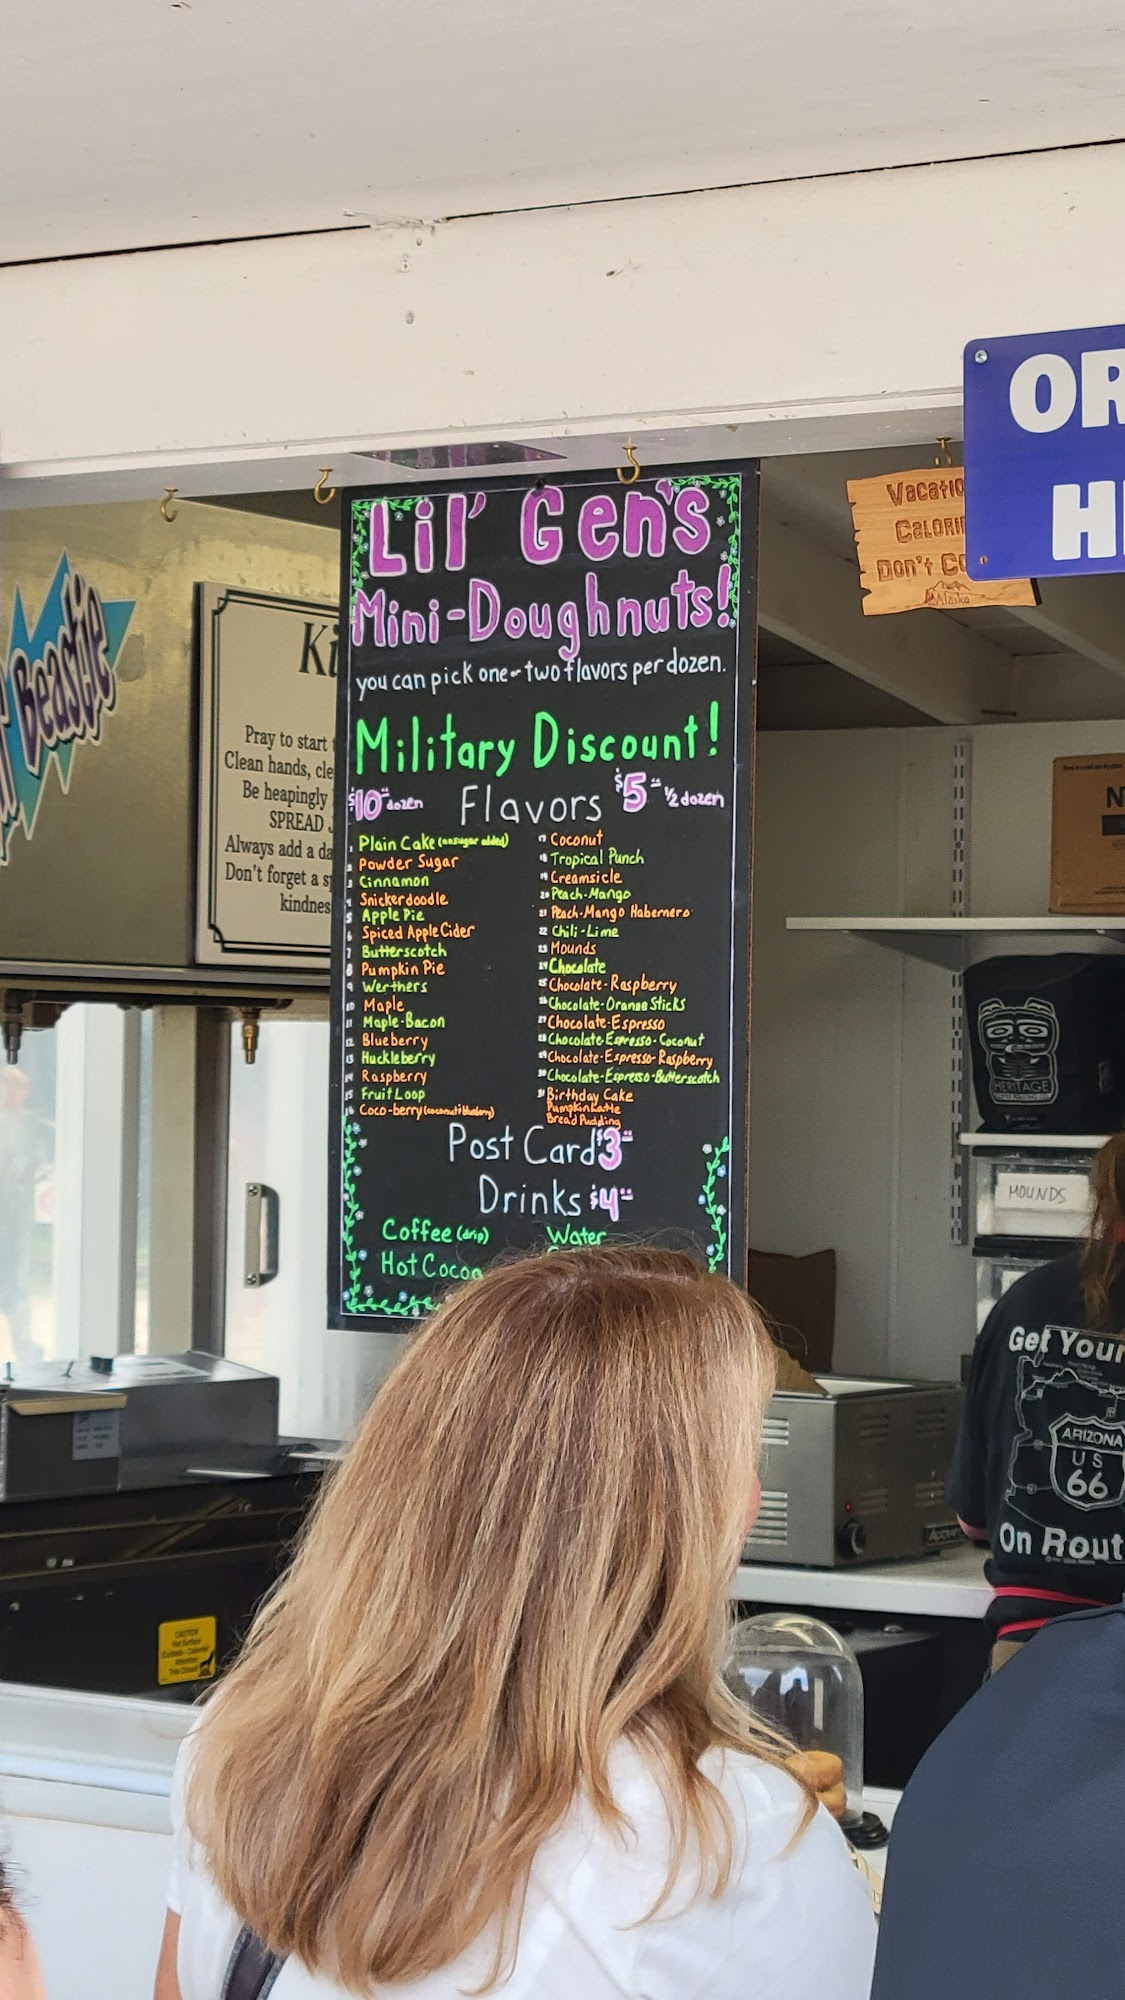 OR
H
Vacatio
Calorie
Don't Co
Alaska
Beastie
Ki
Pray to start
Clean hands, cle
Be heapingly
SPREAD J
Always add a da
Don't forget a s
kindnes
Lil' Gen's
Mini-Doughnuts!
you can pick one or two flavors per dozen.
Military Discount!
$10 dozen Flavors $5 1/2 dozen
1 Plain Cake (no sugar added)
2 Powder Sugar
3 Cinnamon
4 Snickerdoodle
5 Apple Pie
6 Spiced Apple Cider
7 Butterscotch
8 Pumpkin Pie
9 Werthers
10 Maple
11 Maple-Bacon
12 Blueberry
13 Huckleberry
14 Raspberry
15 Fruit Loop
16 Coco-berry (coconut & blueberry)
17 Coconut
18 Tropical Punch
19 Creamsicle
20 Peach-Mango
21 Peach-Mango Habernero
22 Chili-Lime
23 Mounds
24 Chocolate
25 Chocolate-Raspberry
26 Chocolate-Orange Sticks
27 Chocolate-Espresso
28 Chocolate Espresso-Coconut
29 Chocolate-Espresso-Raspberry
30 Chocolate-Espresso-Butterscotch
31 Birthday Cake
Pumpkin Latte
Bread Pudding
Post Card $3
Drinks $4
Coffee (drip)
Hot Cocoa
Water
N
HERITAGE
MOUNDS
Get Your
ARIZONA
US
66
On Rout
CAUTION
Hot Surface